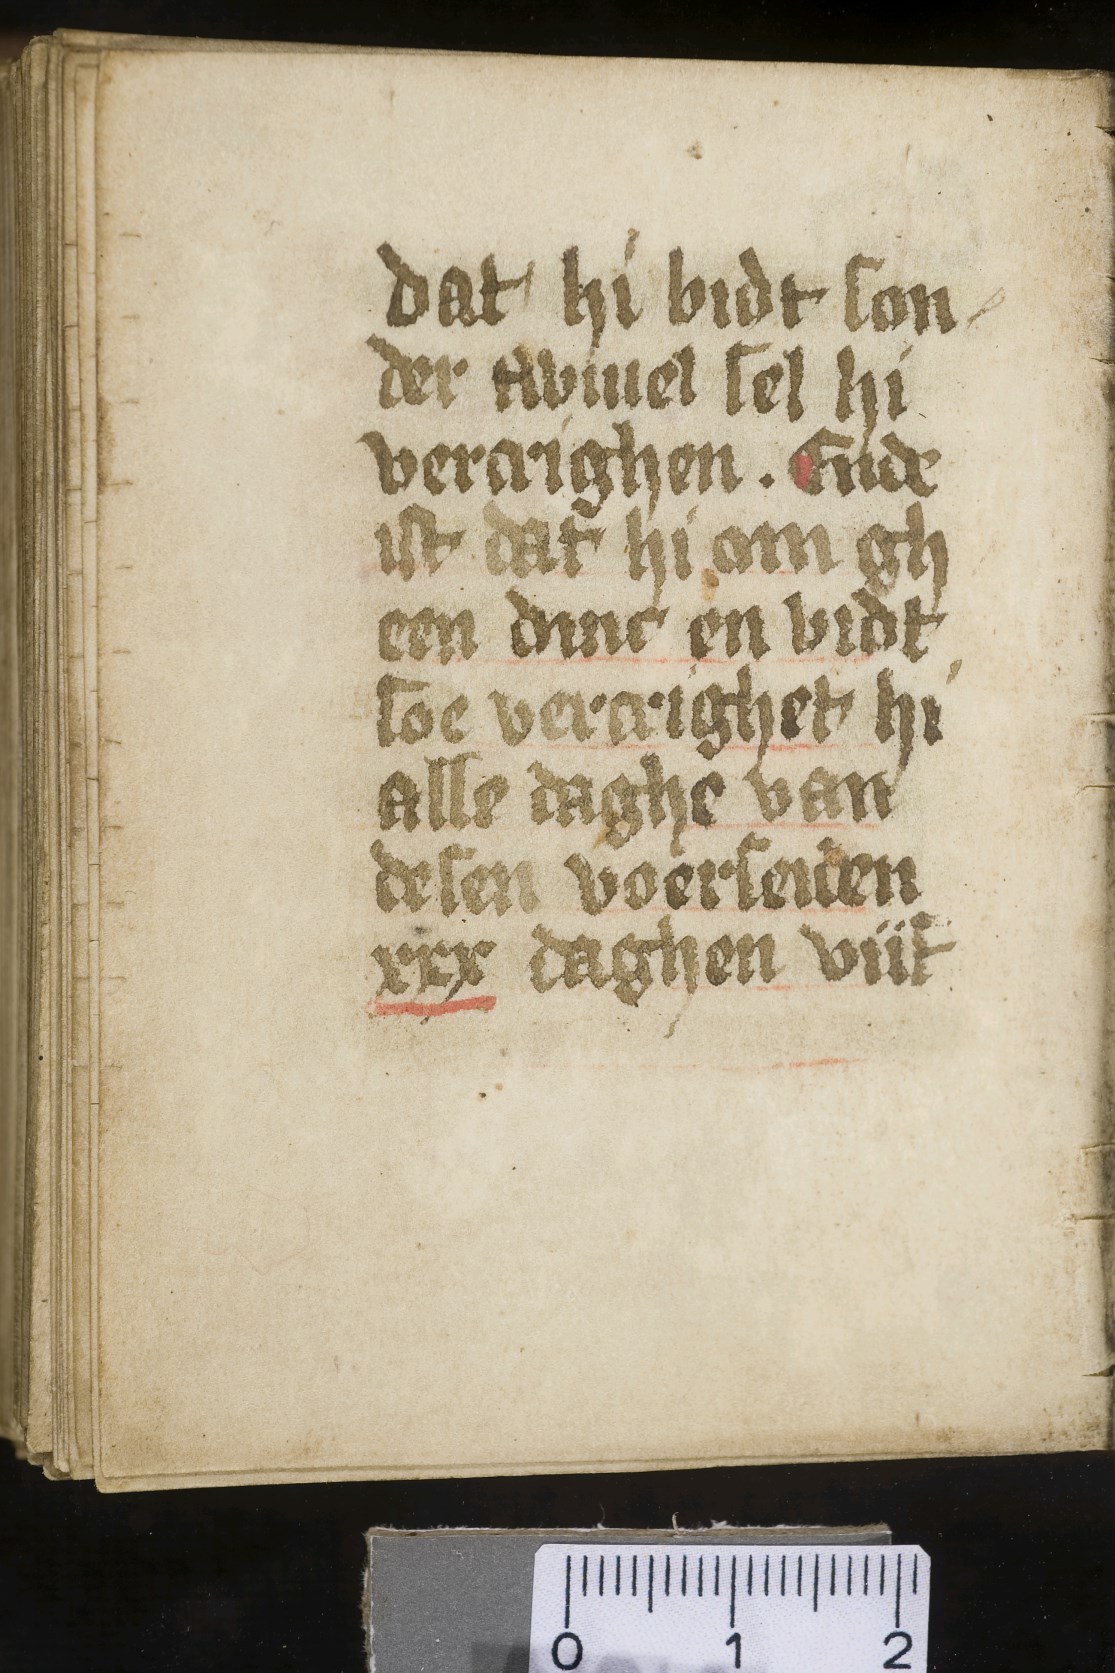 dat hi bidt son
der twiuel sel hi
vercrighen. Ende
ist dat hi om gh
een dinc en bidt
soe vercrighet hi
alle daghe van
desen voerseiden
xxx daghen viif
0 1 2